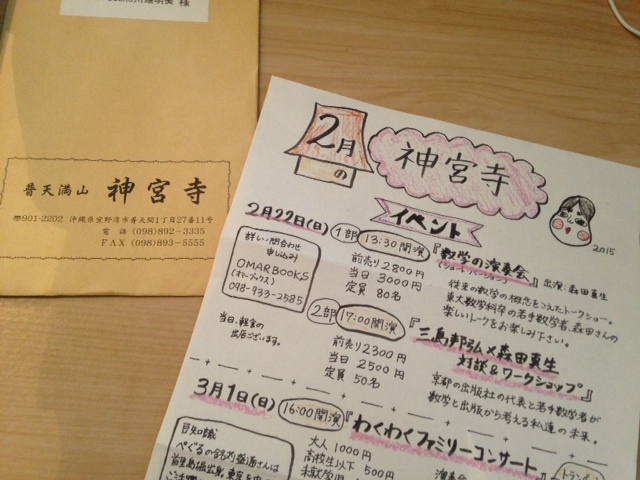 様
普天満山 神宮寺
〒901-2202 沖縄県宜野湾市普天間1丁目27番11号
電話 (098)892-3335
FAX (098)893-5555
2月の
神宮寺
イベント
2015
2月22日(日)
1部
13:30開演
『数学の演奏会』
(ショートバージョン)
出演:森田真生
前売り2800円
当日 3000円
定員 80名
従来の数学の概念をこえたトークショー。
東大数学科卒の若手数学者、森田さんの
楽しいトークをお楽しみ下さい。
詳しい問合わせ
申し込み
OMARBOOKS
(オマーブックス)
098-933-2585
当日、軽食の
出店ございます。
2部
17:00開演
『三島邦弘×森田真生
対談&ワークショップ』
前売り2300円
当日 2500円
定員 50名
京都の出版社の代表と若手数学者が
数学と出版から考える私達の未来。
3月1日(日)
16:00開演
『わくわくファミリーコンサート』
大人 1000円
高校生以下 500円
未就学児
演奏会
豆知識